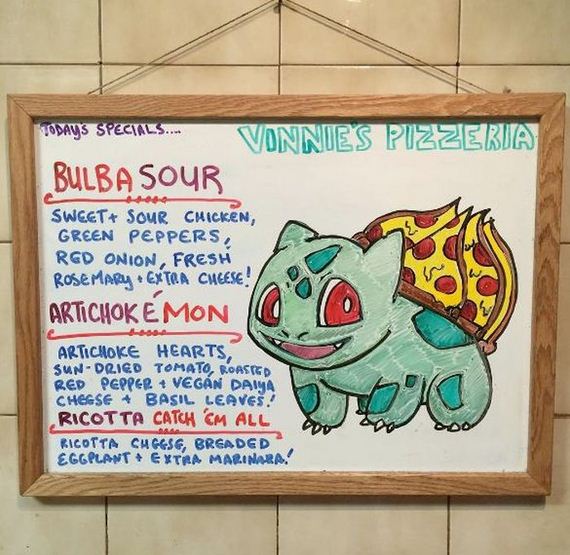 TODAY'S SPECIALS....
VINNIE'S PIZZERIA
BULBA SOUR
SWEET + SOUR CHICKEN,
GREEN PEPPERS,
RED ONION, FRESH
ROSEMARY + EXTRA CHEESE!
ARTICHOKÉMON
ARTICHOKE HEARTS,
SUN-DRIED TOMATO, ROASTED
RED PEPPER + VEGAN DAIYA
CHEESE + BASIL LEAVES!
RICOTTA CATCH 'EM ALL
RICOTTA CHEESE, BREADED
EGGPLANT + EXTRA MARINARA!